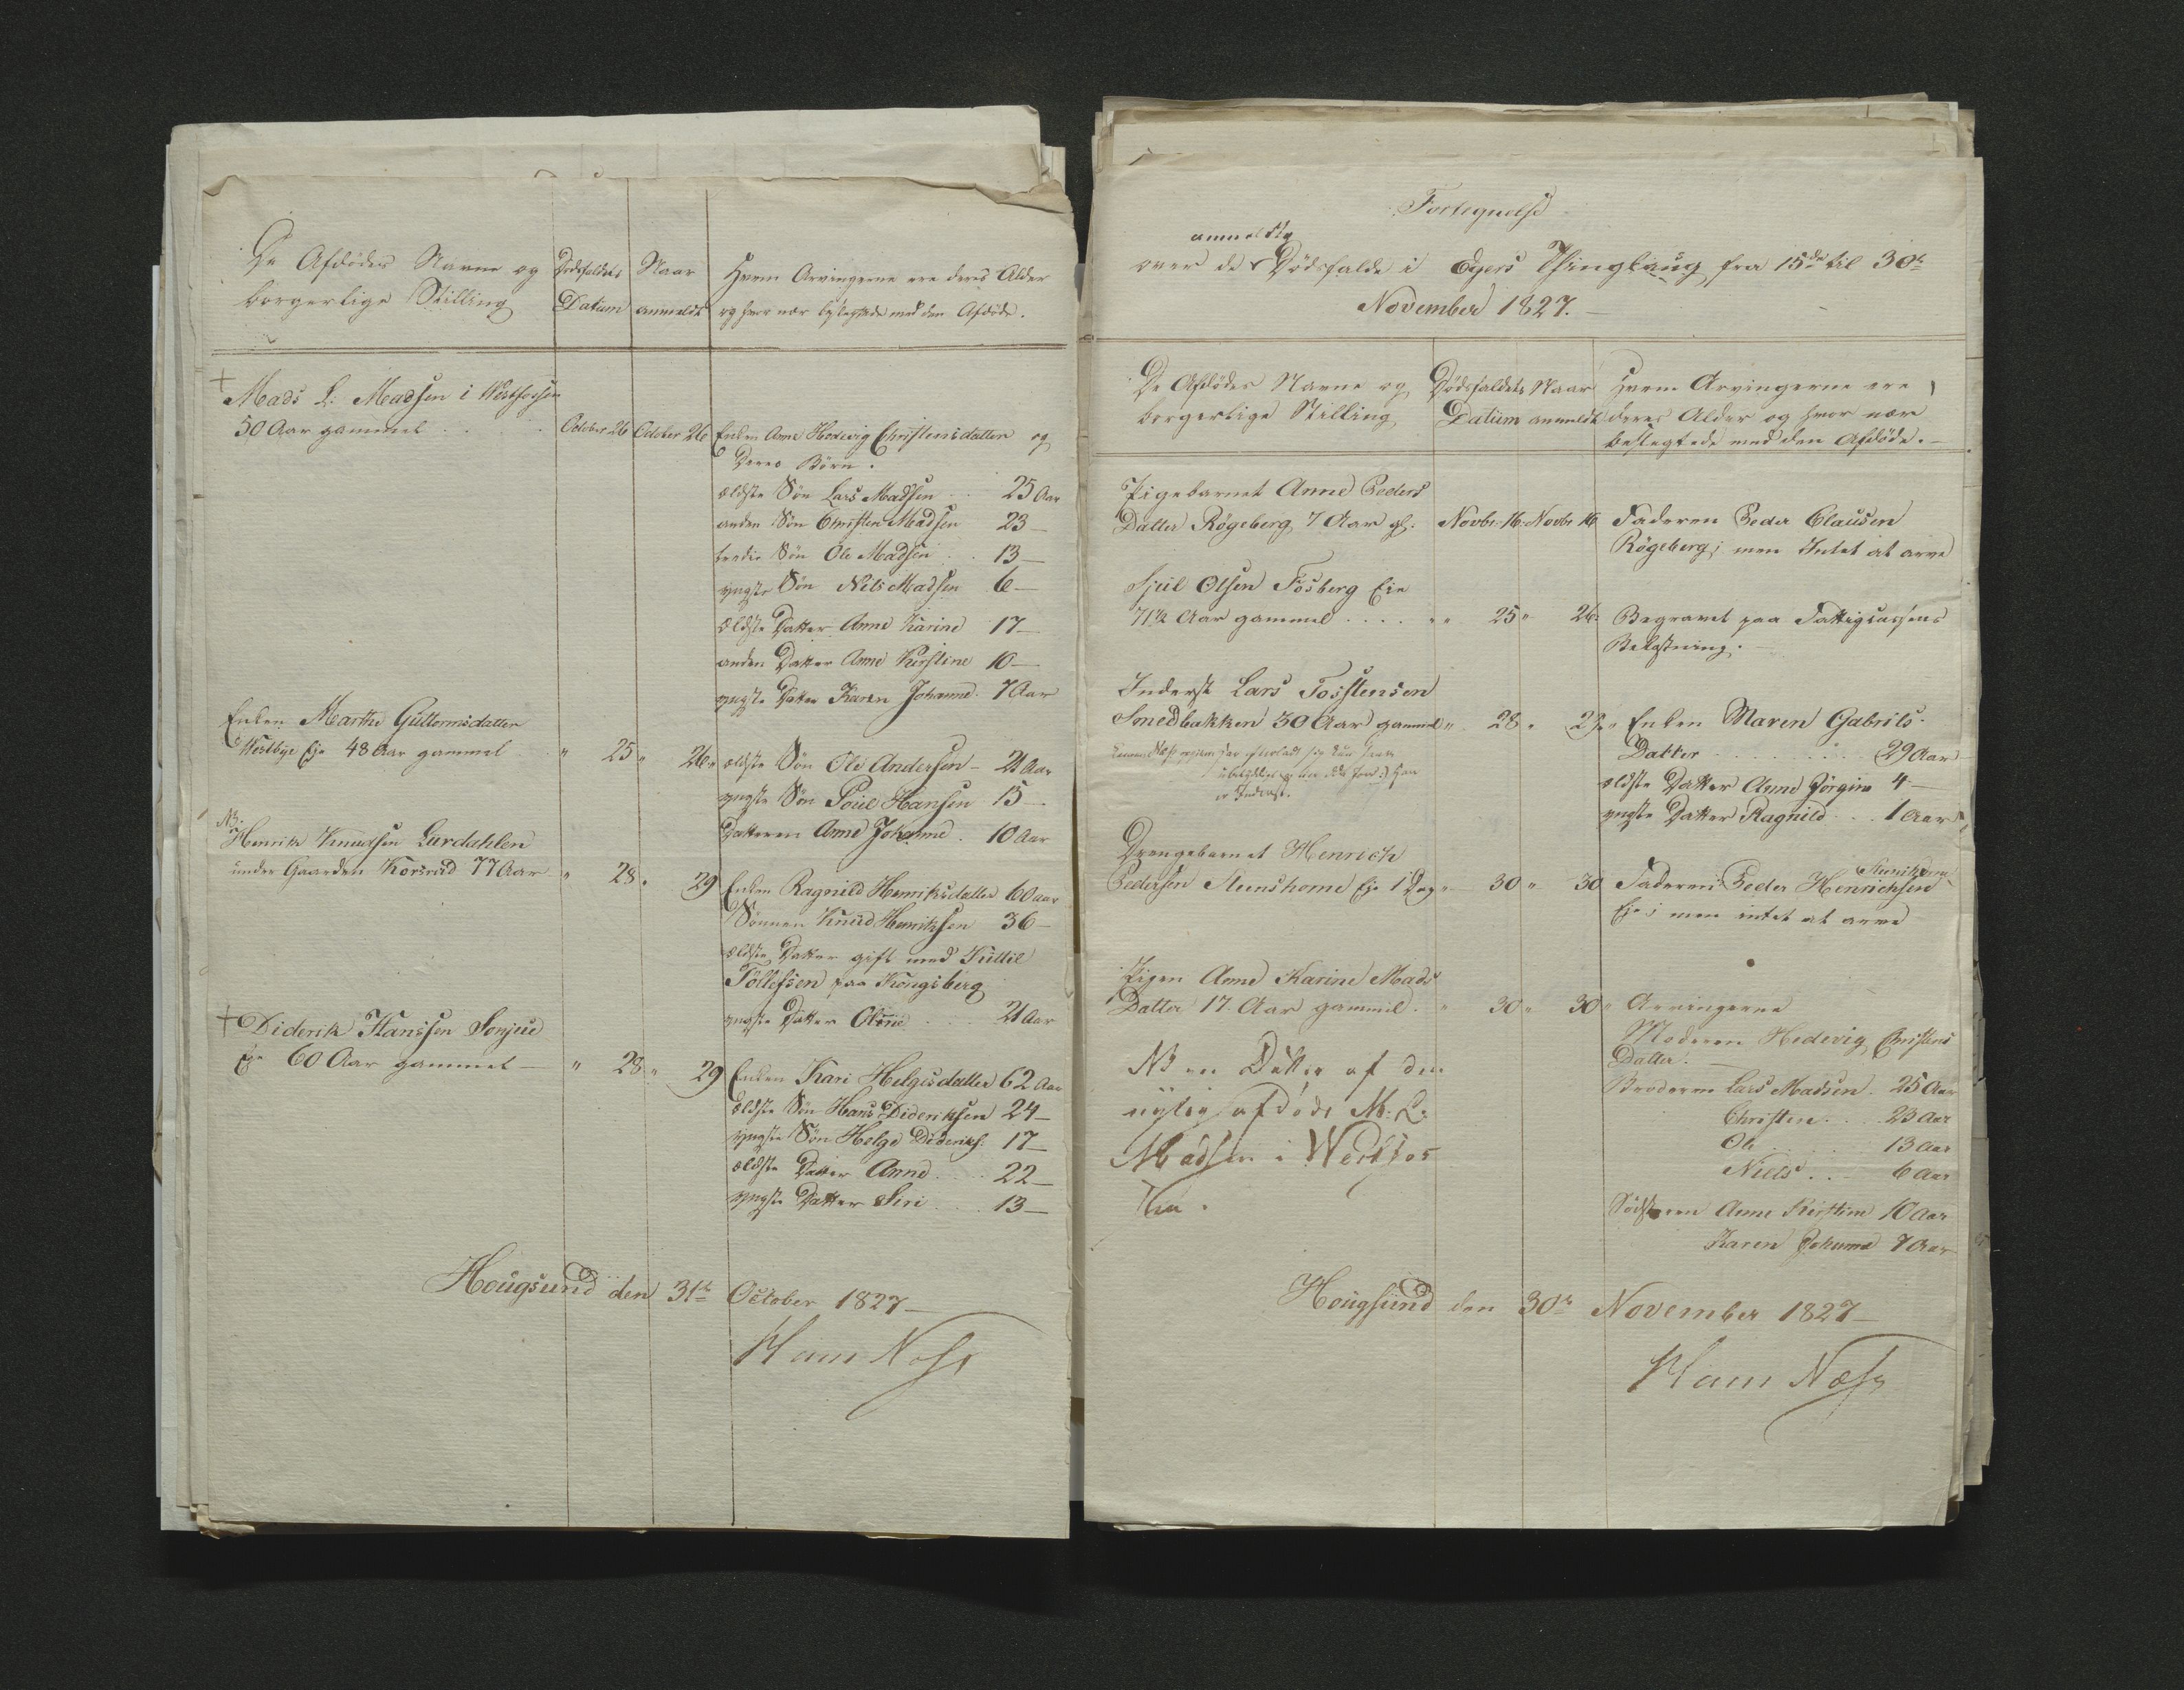 De Afdødes Navne og
borgerlige Stilling
Dødsfaldets
Datum
Naar
anmeldt
Hvem Arvingerne ere deres Alder
og hvor nær beslegtede med den Afdøde.
Mads L. Madsen i Westfossen
50 Aar gammel . . . October 26 October 26 Enken Anne Hedevig Christensdatter og
Deres Børn.
ældste Søn Lars Madsen . . 25 Aar
anden Søn Christen Madsen 23 —
tredie Søn Ole Madsen . . 13 —
yngste Søn Nels Madsen 6 —
Ældste Datter Anne Karine 17 —
anden Datter Anne Kirstine 10 —
yngste Datter Karen Johanne. 7 Aar
Enken Marthe Guttormsdatter
Westbye Eje 48 Aar gammel " 25 " 26 " ældste Søn Ole Andersen — 21 Aar
yngste Søn Poul Hansen 15 —
Datteren Anne Johanne . 10 Aar
NB.
Henrik Knudsen Lurdahlen
under Gaarden Korsrud 77 Aar " 28 " 29 Enken Ragnild Henriksdatter 60 aar
Sønnen Knud Henriksen 36 —
ældste Datter gift med Kittil
Tollefsen paa Kongsberg
yngste Datter Olene . . . 21 Aar
Diderik Hanssen Sonjue
Eje 60 Aar gammel — " 28 " 29 Enken Kari Helgesdatter 62 Aar
ældste Søn Hans Dideriksen 24 —
yngste Søn Helge Dideriks. 17 —
ældste Datter Anne . . . 22 —
yngste Datter Siri . . . 13 —
Hougsund den 31te October 1827 —
Ham Næss
Fortegnelse
anmeldte
over de Dødsfalde i Egers Thinglaug fra 15de til 30te
November 1827. —
De Afdødes Navne og
borgerlige Stilling
Dødsfaldets
Datum
Naar
anmeldt
Hvem Arvingerne ere
deres Alder og hvor nær
beslegtede med den Afdøde. —
Pigebarnet Anne Peders
Datter Røgeberg 7 Aar gl. Novbr. 16. Novbr 16 Faderen Peder Clausen
Røgeberg; men Intet at arve
Sjul Olsen Fosberg Eie
71½ Aar gammel . . . . " " 25 " 26. Begravet paa Fattigcassens
Bekostning. —
Inderst Lars Torstensen
Smedbakken 50 Aar gammel " 28 " 29 " Enken Maren Gabriels
Datter . . . . . . 29 Aar
er Inderst.
ældste Datter Anne Jørgine 4 —
yngste Datter Ragnild . . . 1 Aar
Drengebarnet Henrich
Pedersen Steenshorne Eje 1 Dag " 30 " 30 Faderen Peder Henrichsen
Eje; men intet at arve
Pigen Anne Karine Mads
Datter 17 Aar gammel . " 30 " 30 " Arvingerne
Moderen Hedevig Christens
Datter. —
Brøderne Lars Madsen . 25 Aar
Christen . . . 23 Aar
Ole . . . 13 Aar
Niels . . — 6 Aar
Sødstrene Anne Kirstine 10 Aar
Karen Johanne 7 Aar
NB en Datter af den
nylig afdøde M. L.
Madsen i Westfos
sen.
Hougsund den 30te November 1827 —
Ham Næss